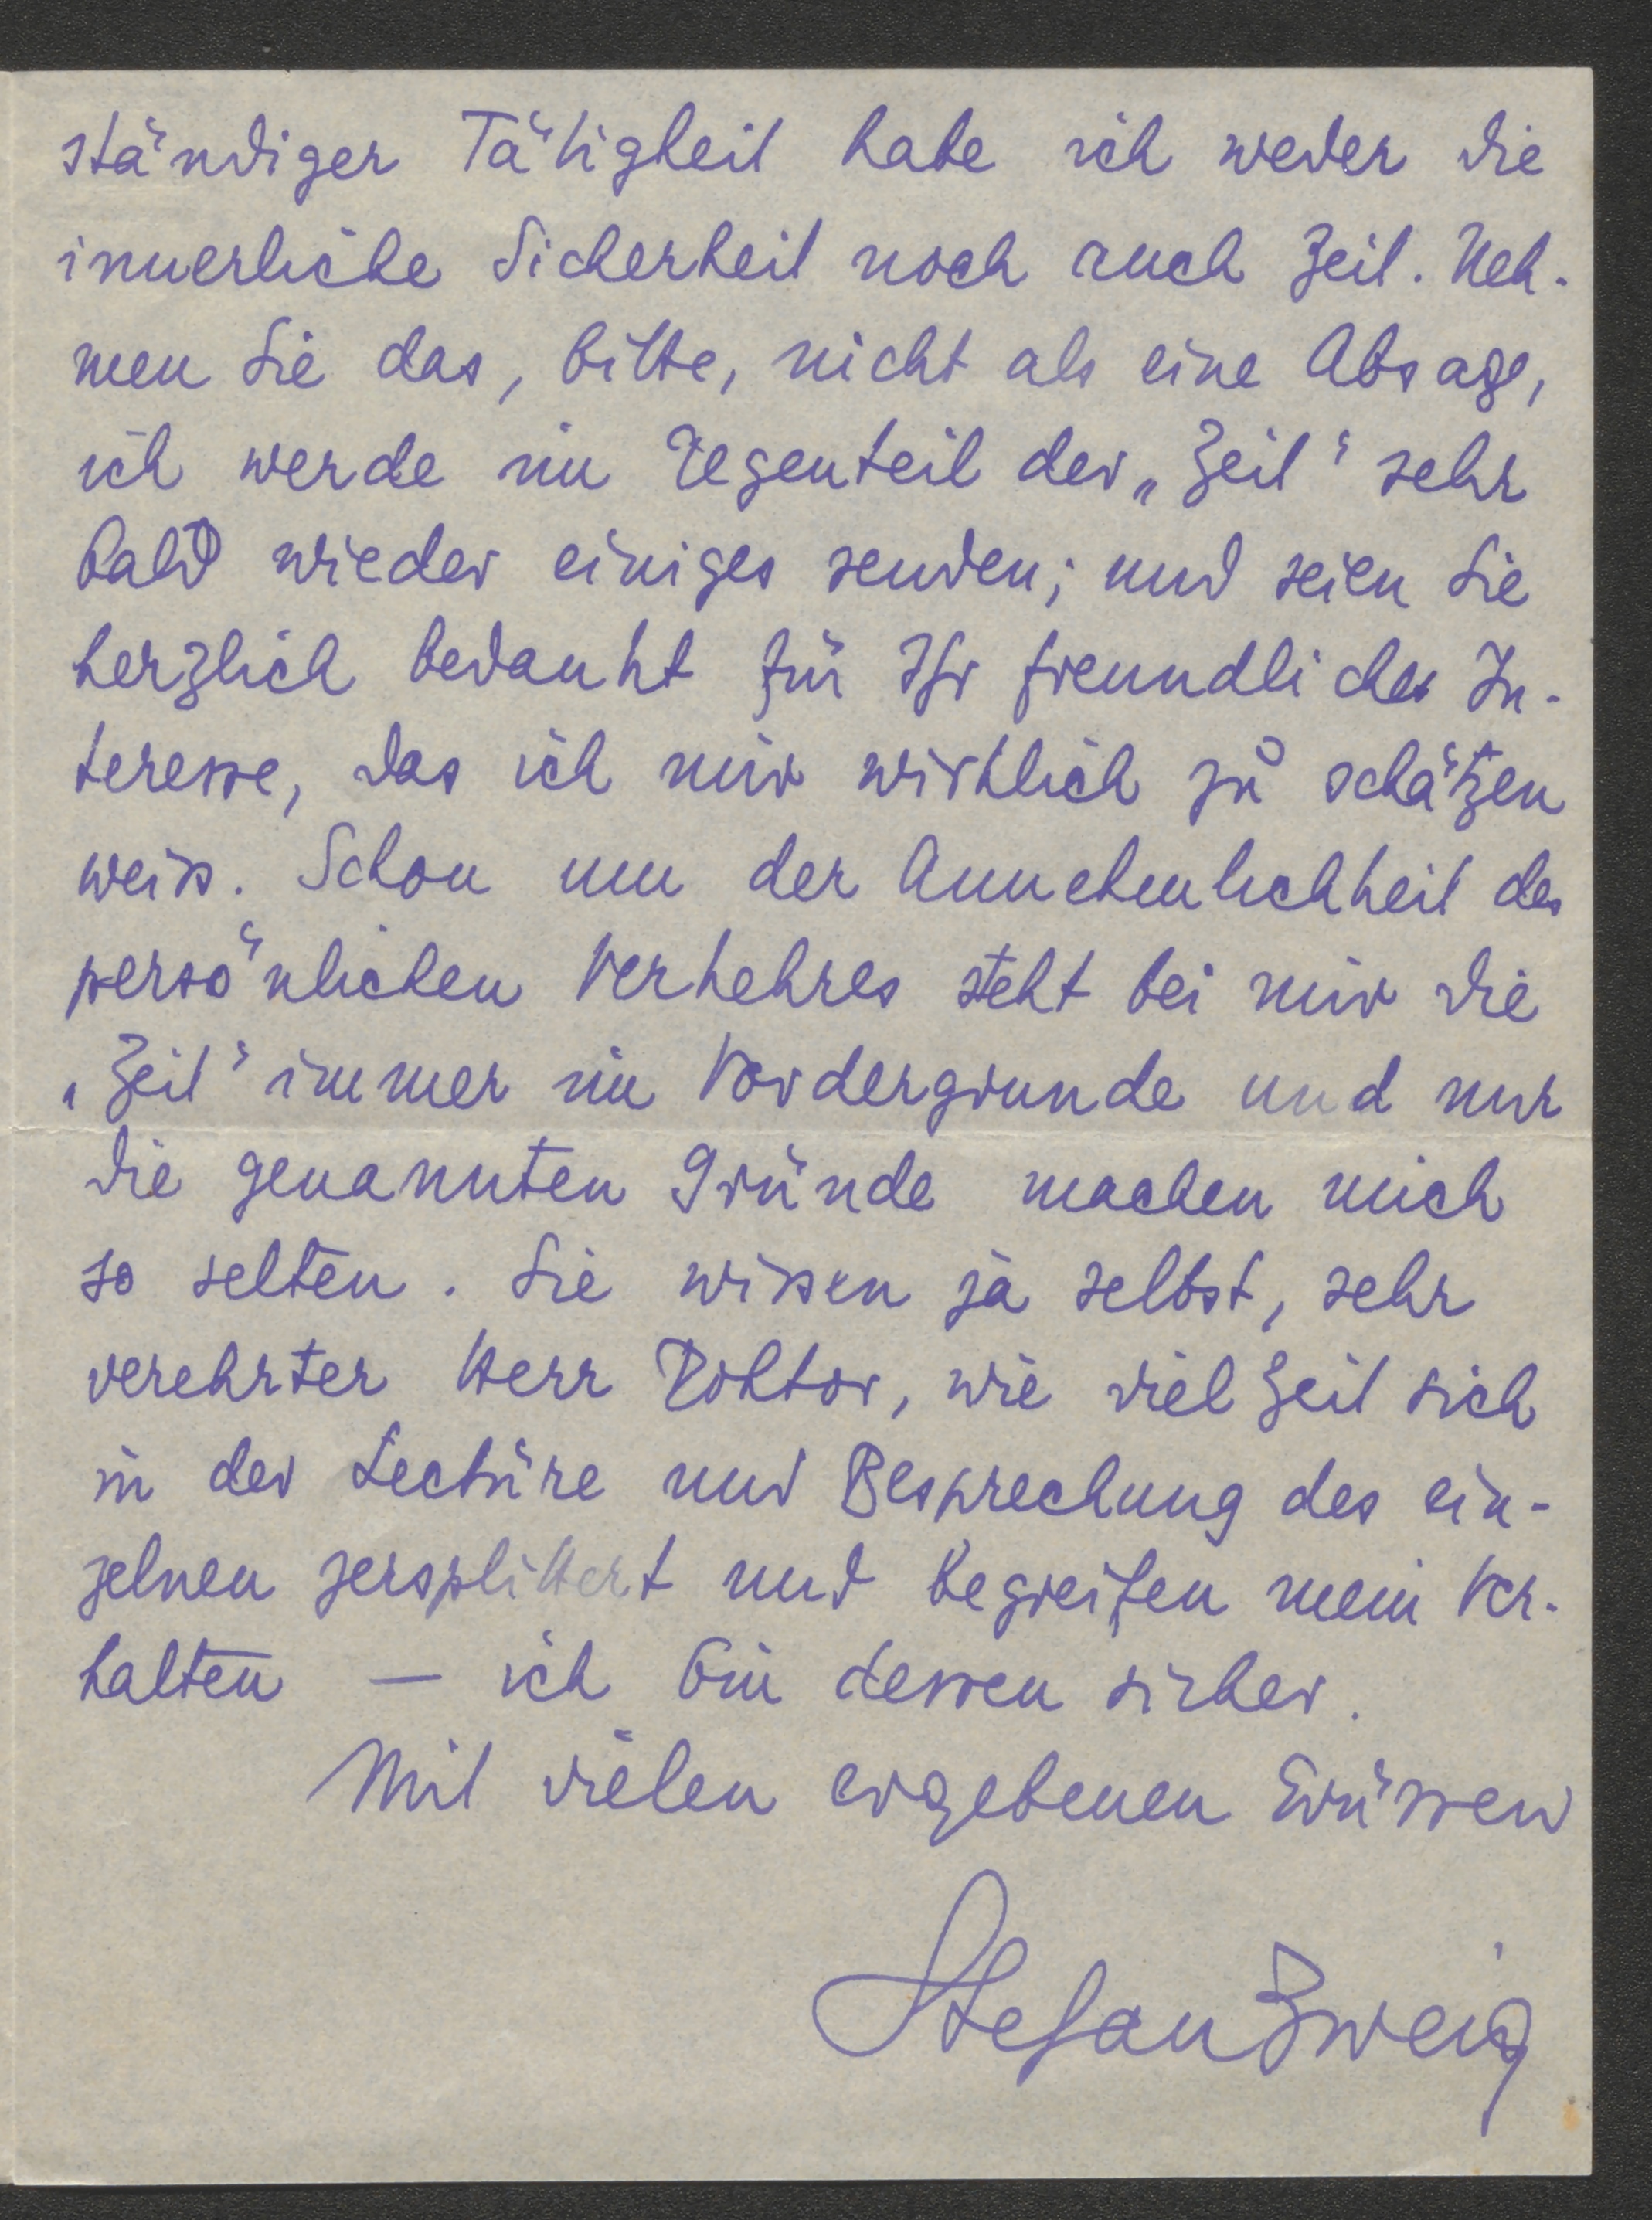 ständiger Tätigkeit habe ich weder die
innerliche Sicherheit noch auch Zeit. Neh-
men Sie das, bitte, nicht als eine Absage,
ich werde im Gegenteil der „Zeit“ sehr
bald wieder einiges senden; und seien Sie
herzlich bedankt für Ihr freundliches In-
teresse, das ich mir wirklich zu schätzen
weiss. Schon um der Annehmlichkeit des
persönlichen Verkehres steht bei mir die
„Zeit“ immer im Vordergrunde und nur
die genannten Gründe machen mich
so selten. Sie wissen ja selbst, sehr
verehrter Herr Doktor, wie viel Zeit sich
in der Lectüre und Besprechung des ein-
zelnen zersplittert und begreifen mein Ver-
halten – ich bin dessen sicher.
Mit vielen ergebenen Grüssen
Stefan Zweig